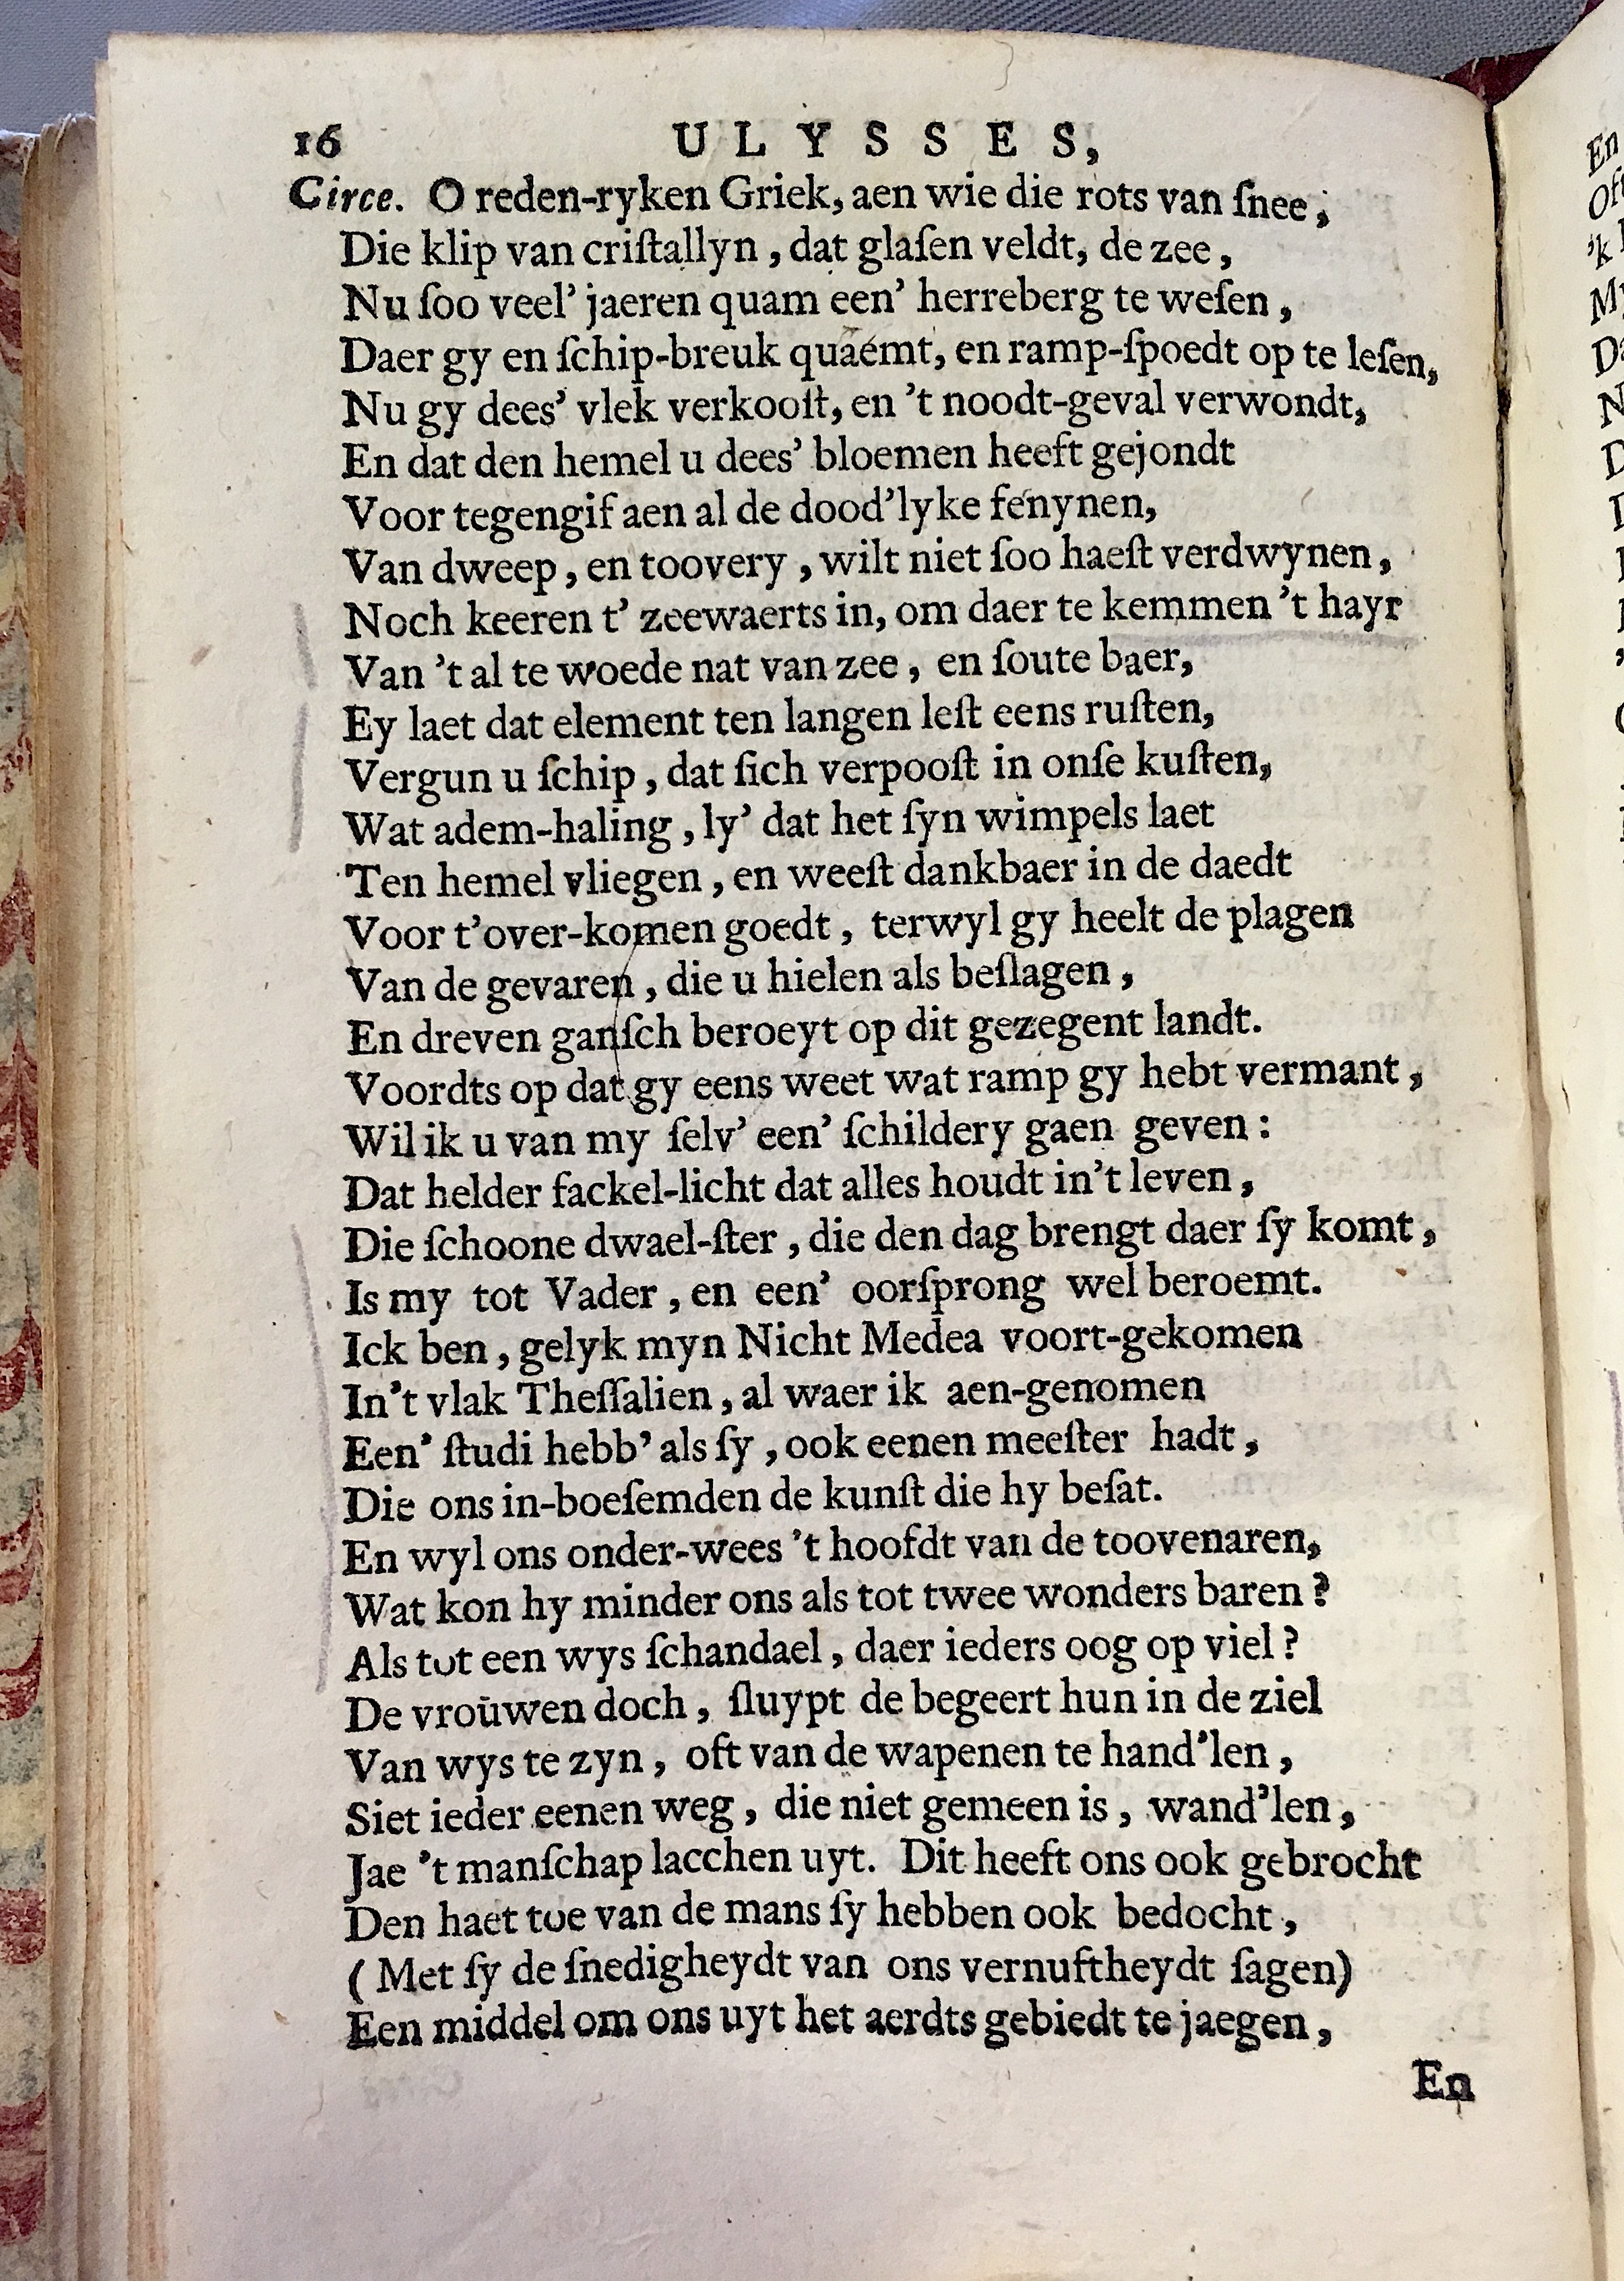 16 ULYSSES,
Circe. O reden-ryken Griek, aen wie die rots van ſnee,
Die klip van criſtallyn, dat glaſen veldt, de zee,
Nu ſoo veel’ jaeren quam een’ herreberg te weſen,
Daer gy en ſchip-breuk quaemt, en ramp-ſpoedt op te leſen,
Nu gy dees’ vlek verkooſt, en ’t noodt-geval verwondt,
En dat den hemel u dees’ bloemen heeft gejondt
Voor tegengif aen al de dood’lyke fenynen,
Van dweep, en toovery, wilt niet ſoo haeſt verdwynen,
Noch keeren t’ zeewaerts in, om daer te kemmen ’t hayr
Van ’t al te woede nat van zee, en ſoute baer,
Ey laet dat element ten langen leſt eens ruſten,
Vergun u ſchip, dat ſich verpooſt in onſe kuſten,
Wat adem-haling, ly’ dat het ſyn wimpels laet
Ten hemel vliegen, en weeſt dankbaer in de daedt
Voor t’over-komen goedt, terwyl gy heelt de plagen
Van de gevaren, die u hielen als beſlagen,
En dreven ganſch beroeyt op dit gezegent landt.
Voordts op dat gy eens weet wat ramp gy hebt vermant,
Wil ik u van my ſelv’ een’ ſchildery gaen geven:
Dat helder fackel-licht dat alles houdt in’t leven,
Die ſchoone dwael-ſter, die den dag brengt daer ſy komt,
Is my tot Vader, en een’ oorſprong wel beroemt.
Ick ben, gelyk myn Nicht Medea voort-gekomen
In’t vlak Theſſalien, al waer ik aen-genomen
Een’ ſtudi hebb’ als ſy, ook eenen meeſter hadt,
Die ons in-boeſemden de kunſt die hy beſat.
En wyl ons onder-wees ’t hoofdt van de toovenaren,
Wat kon hy minder ons als tot twee wonders baren?
Als tot een wys ſchandael, daer ieders oog op viel?
De vroūwen doch, ſluypt de begeert hun in de ziel
Van wys te zyn, oft van de wapenen te hand’len,
Siet ieder eenen weg, die niet gemeen is, wand’len,
Jae ’t manſchap lacchen uyt. Dit heeft ons ook gebrocht
Den haet toe van de mans ſy hebben ook bedocht,
(Met ſy de ſnedigheydt van ons vernuftheydt ſagen)
Een middel om ons uyt het aerdts gebiedt te jaegen,
En